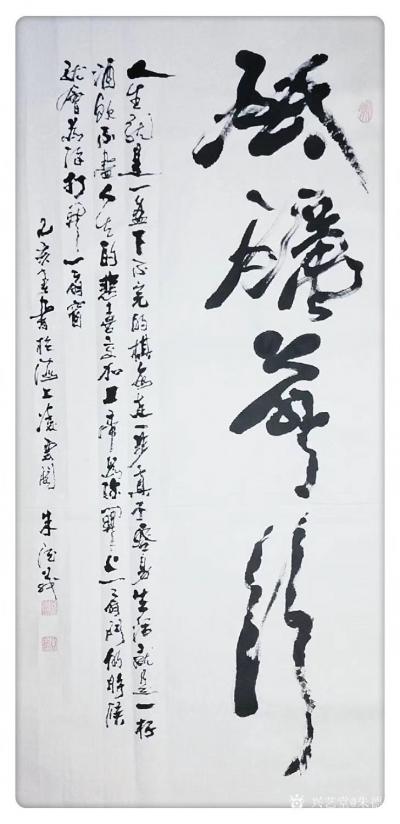 砥礪前行
人生就是一盘下不完的棋每走一步真不容易生活就是一杯
酒饮不尽人生的悲喜交加上帝为你关上一扇门的时候
就会为你打开一扇窗
乙亥春書於海上凌雲閣 朱德義
兴艺堂@朱德